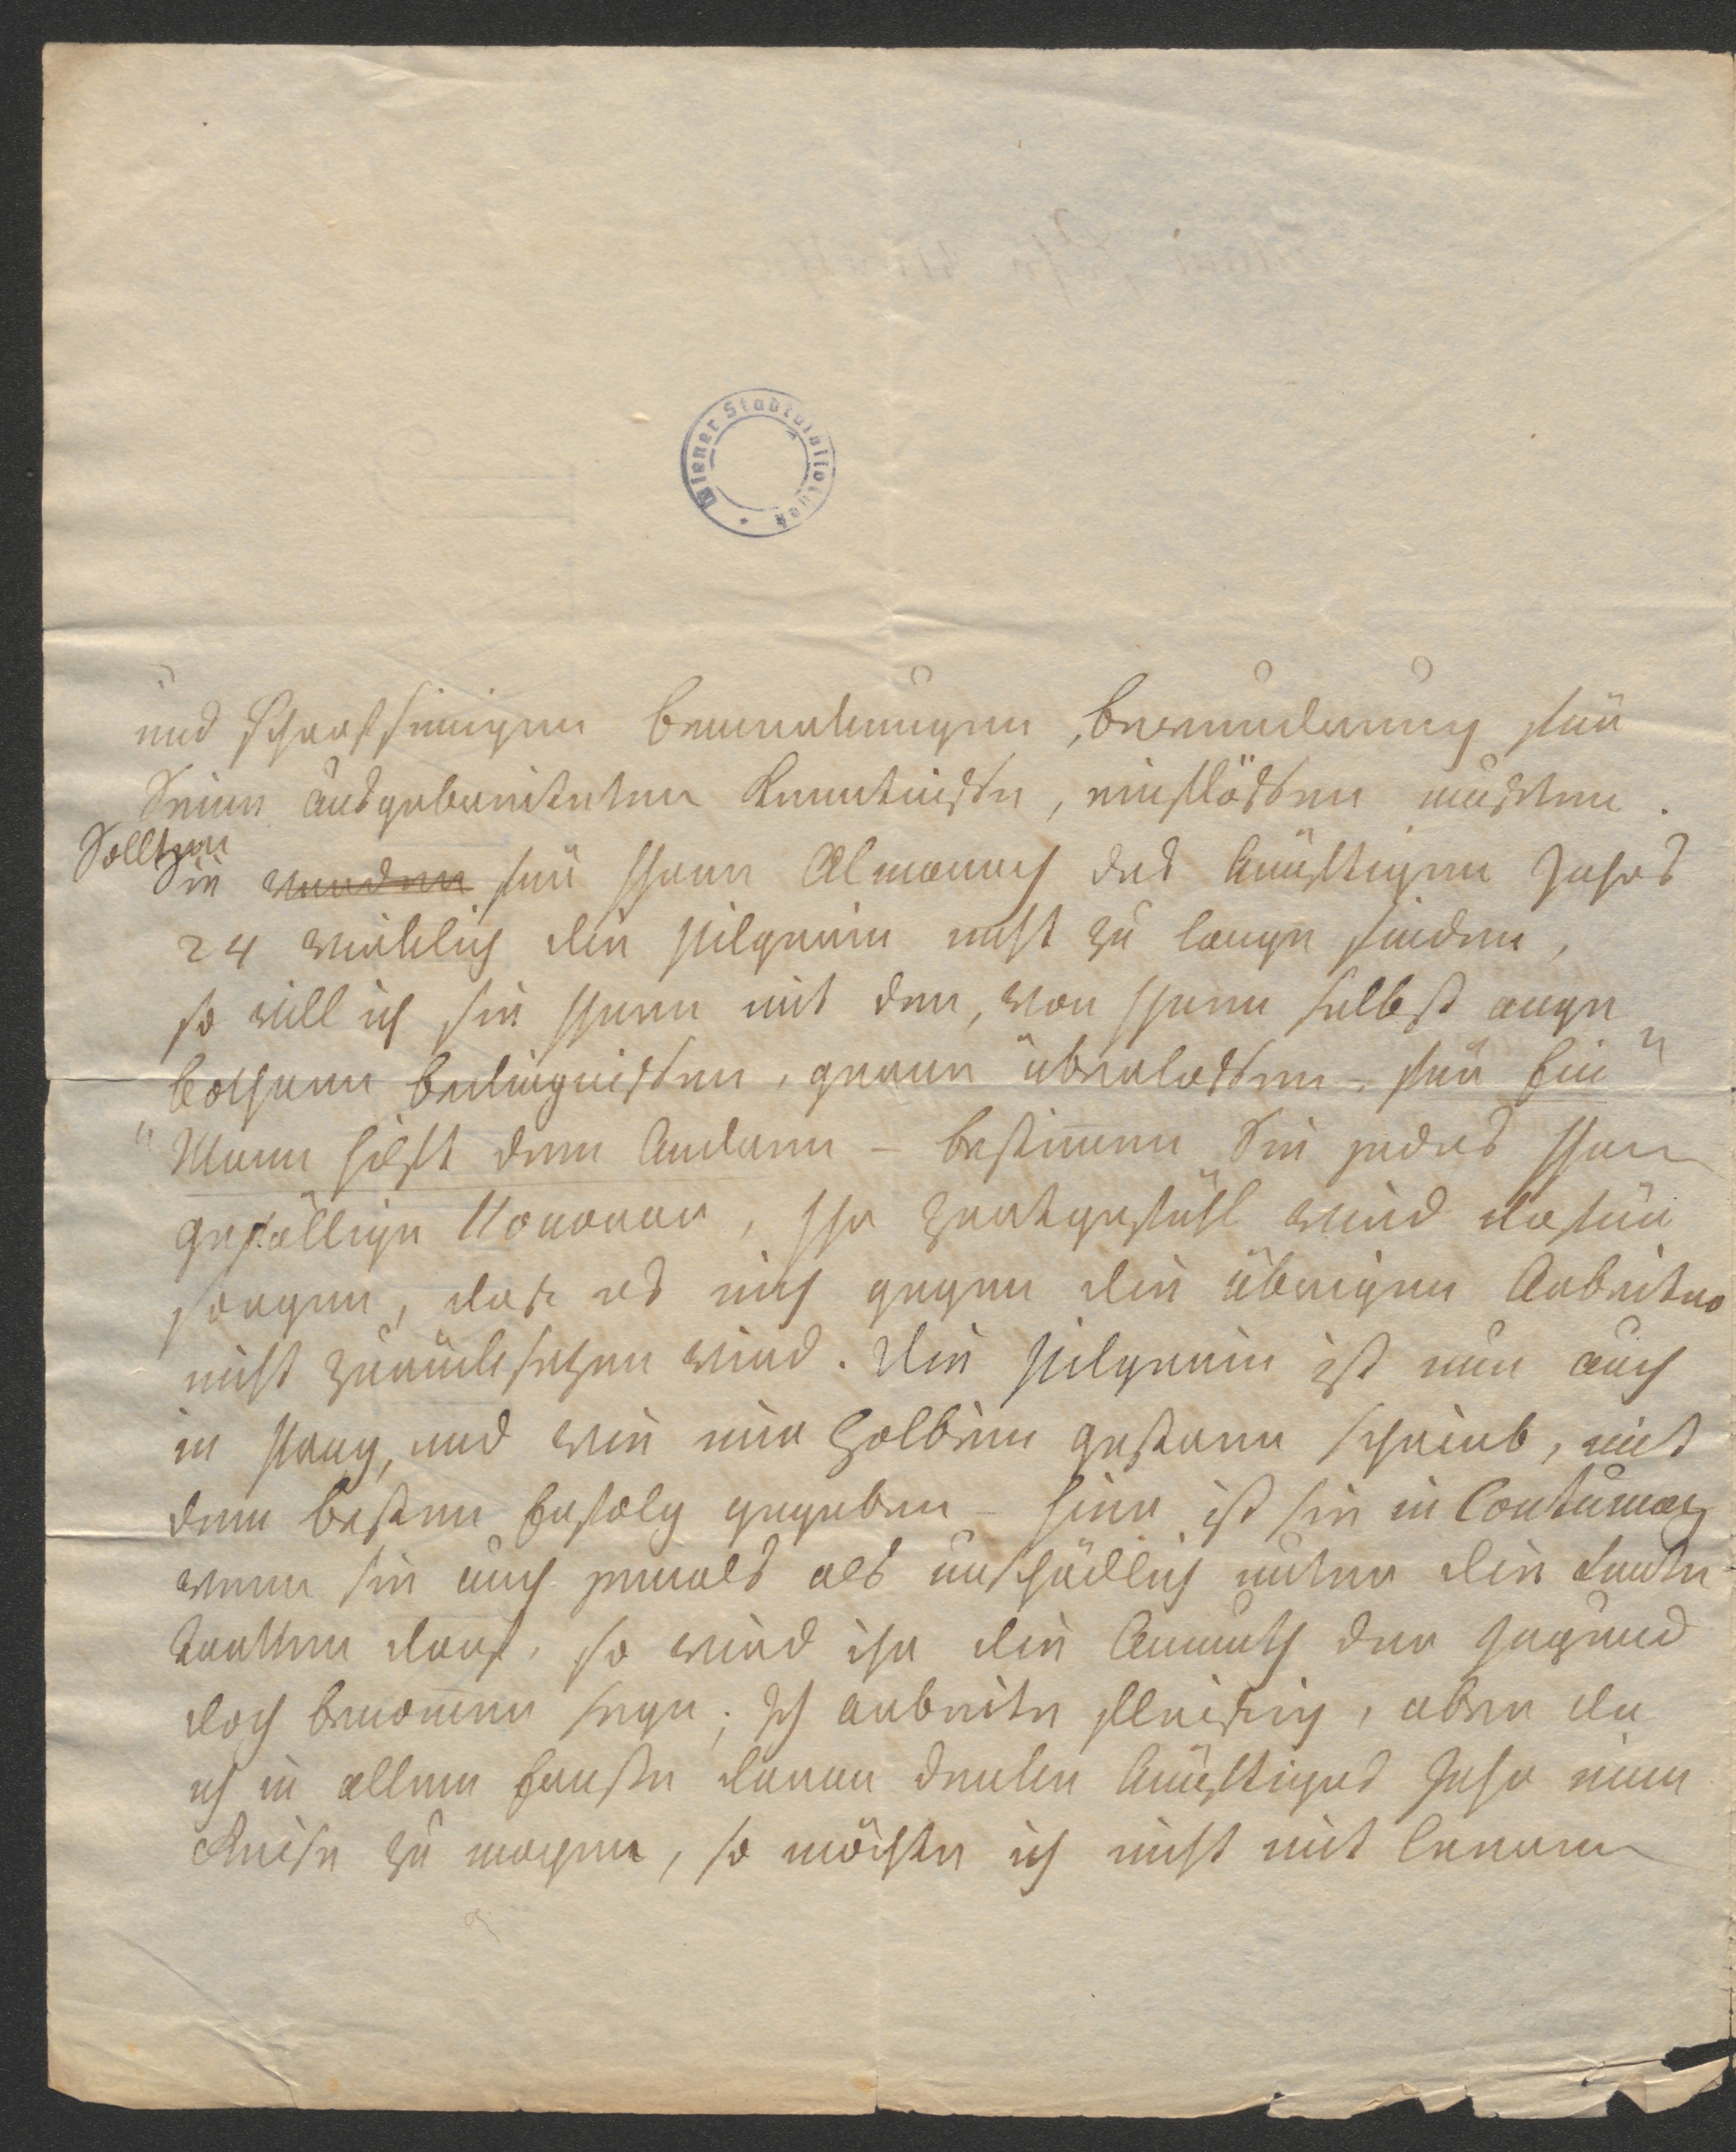 Wiener Stadtbibliothek
und scharfsinnigen Bemerkungen, Bewunderung für
Seine ausgebreiteten Kenntnisse, einflössen mussten.
Sollten
Sie werden für Ihren Almanach des künftigen Jahrs
24 wirklich die Pilgerin nicht zu lange finden,
so will ich sie Ihnen mit den, von Ihnen selbst ange
bothenen Bedingnissen, gerne überlassen – für Ein"
"Mann hilft dem Andern – bestimmen Sie jedes Ihnen
gefällige Honorar, Ihr Zartgefühl wird dafür
sorgen, dass es mich gegen die übrigen Arbeiter
nicht zurücksetzen wird. Die Pilgerin ist nun auch
in Prag, und wie mir Holbein gestern schrieb, mit
dem besten Erfolg gegeben – hier ist sie in Contumaz
wenn sie auch jemals als unschädlich unter die Leute
tretten darf, so wird ihr die Anmuth der Jugend
doch benommen seyn; Ich arbeite fleissig, aber da
ich in allem Ernste daran denke künftiges Jahr eine
Reise zu machen, so möchte ich nicht mit leeren